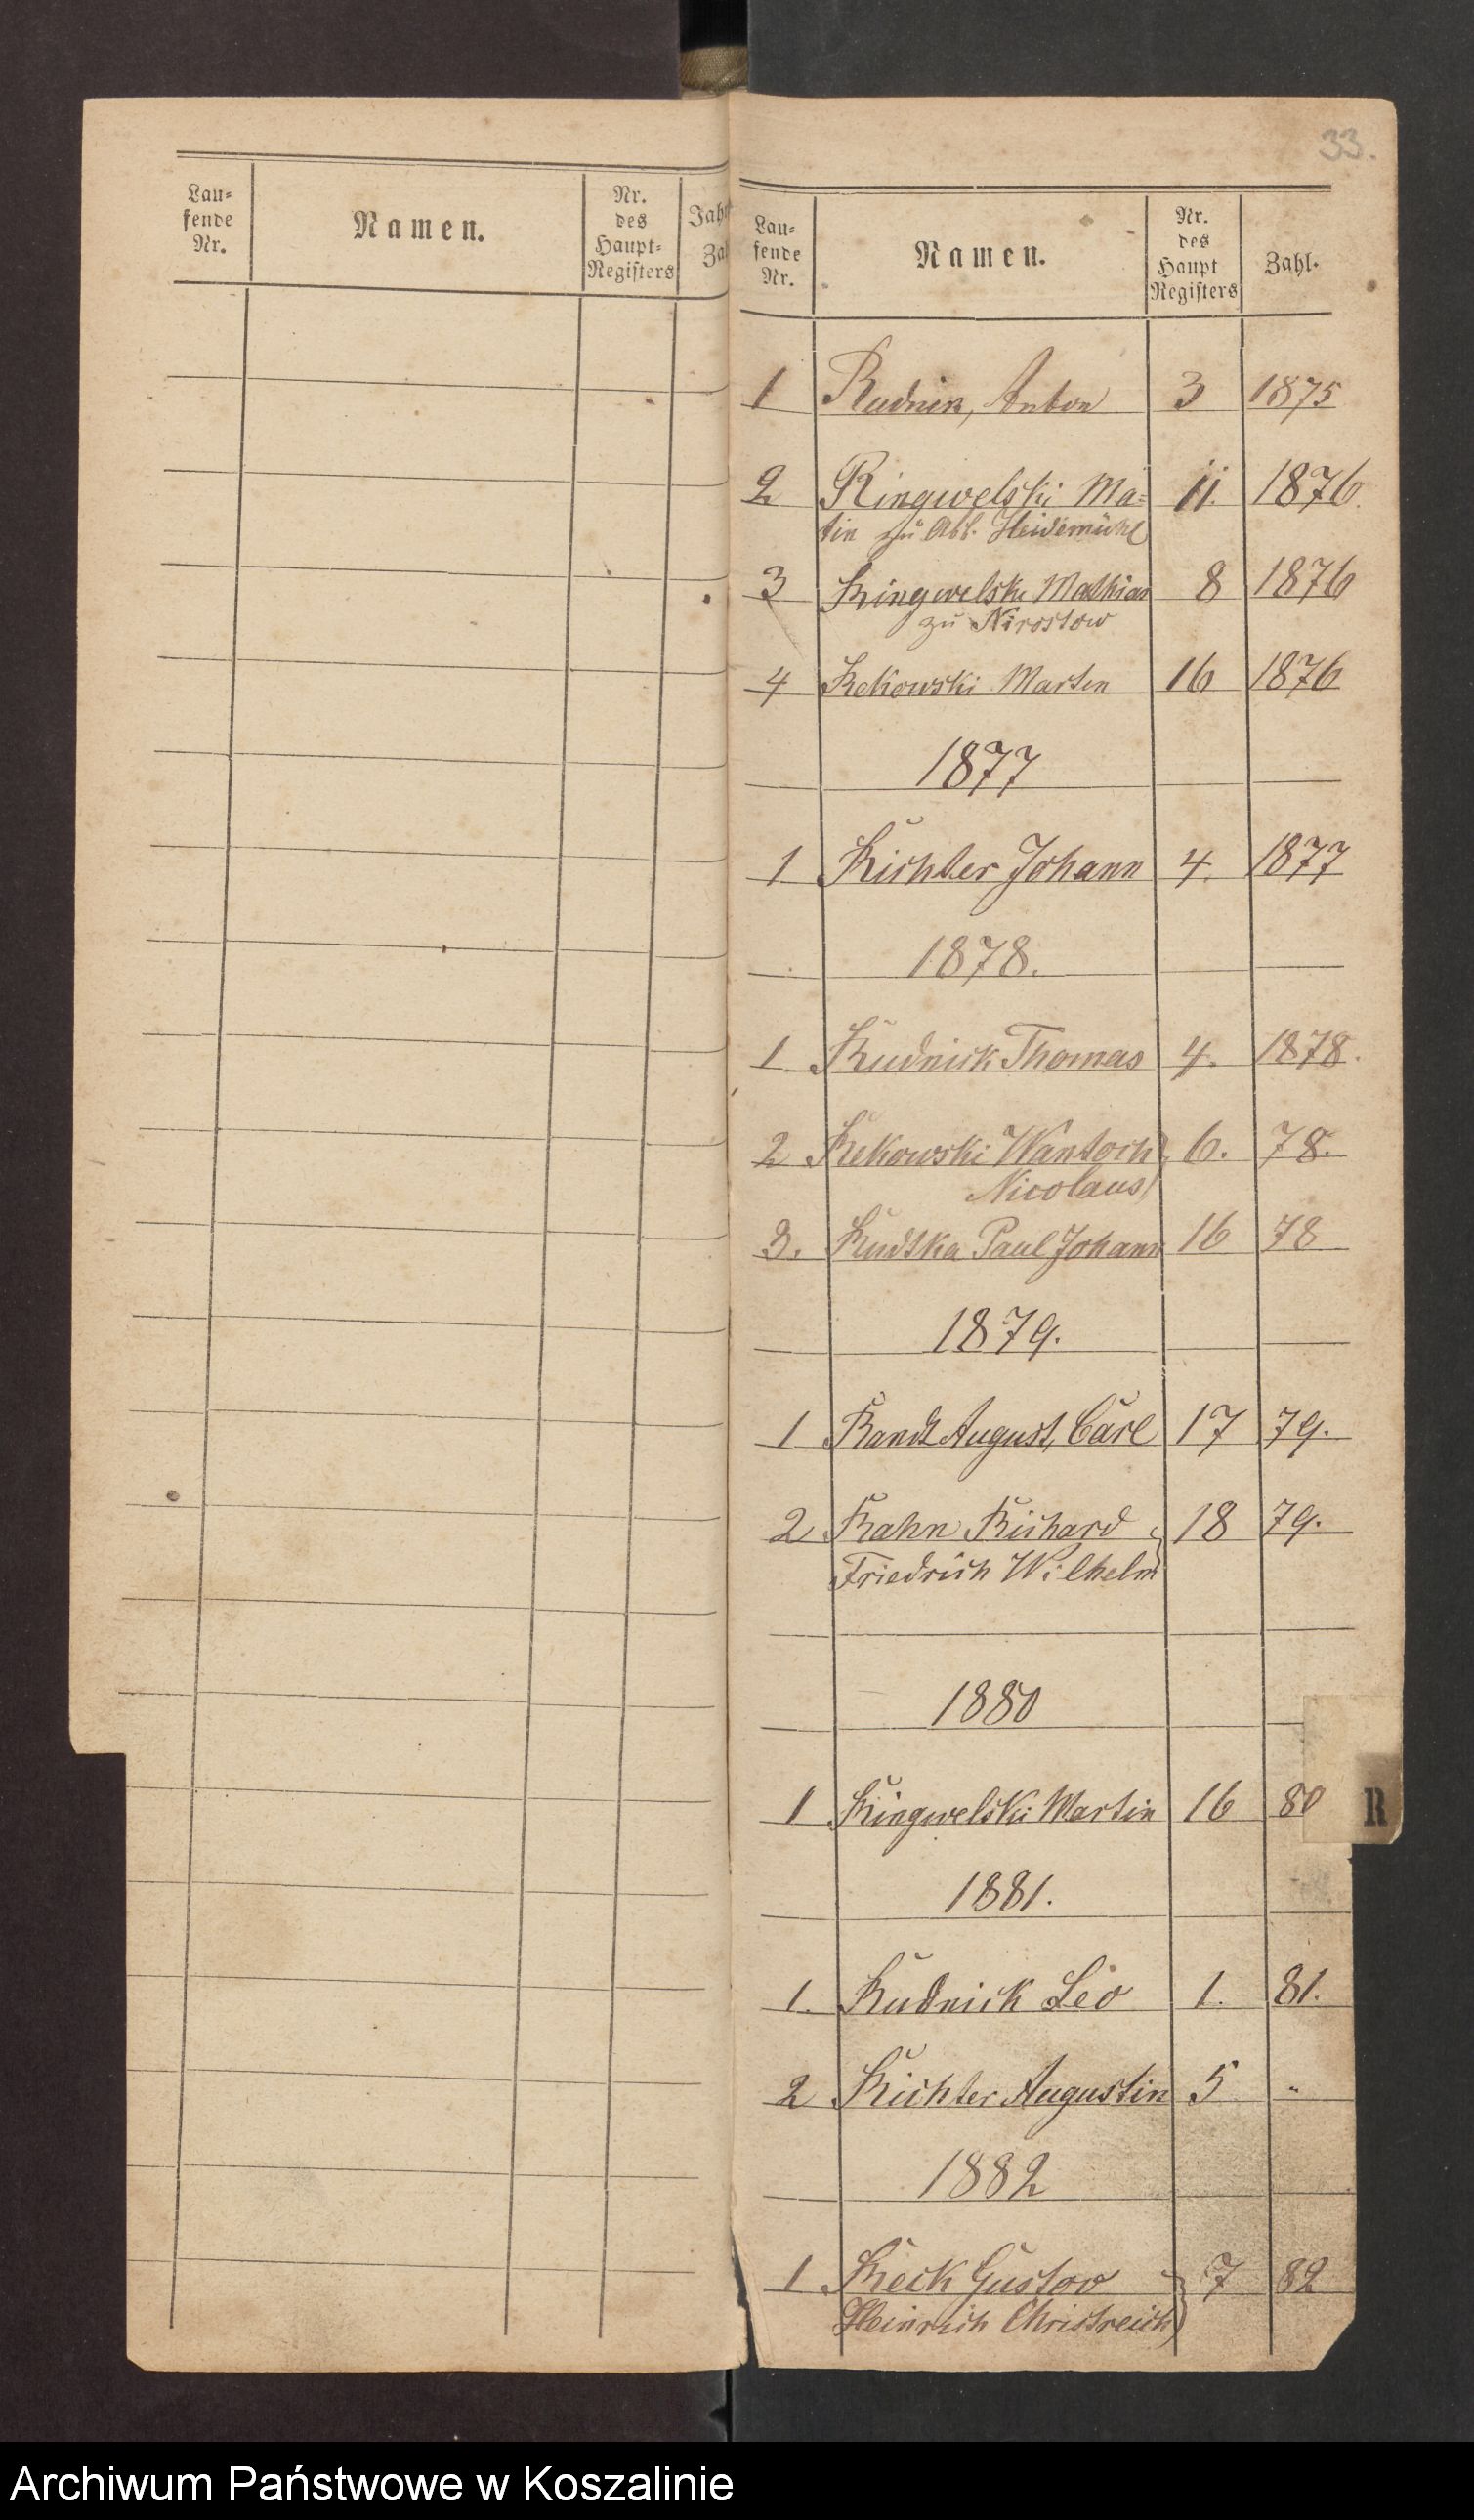 33.
Lau=
fende
Nr.
Namen.
Nr.
des
Haupt=
Registers
Lau=
fende
Nr.
Namen.
Nr.
des
Haupt
Registers
Zahl.
1 Rudnick, Anton 3 1875
2 Ringwelski Ma= 11. 1876.
tin zu Abb. Heidemühl
3 Ringwelski Mathias 8 1876
zu
4 Rekowski Martin 16 1876
1877
1 Richter Johann 4. 1877
1878.
1 Rudnick Thomas 4. 1878.
2 Rekowski Wantoch 6. 78.
Nicolaus
3. Rudska Paul Johann 16 78
1879.
1 Randt August, Carl 17 79.
2 Rahn Richard 18 79.
Friedrich Wilhelm
1880
1 Ringwelski Martin 16 80
R
1881.
1. Rudnick Leo 1. 81.
2 Richter Augustin 5 "
1882
1 Reck Gustav 7 82
Heinrich Christreich
Archiwum Państwowe w Koszalinie